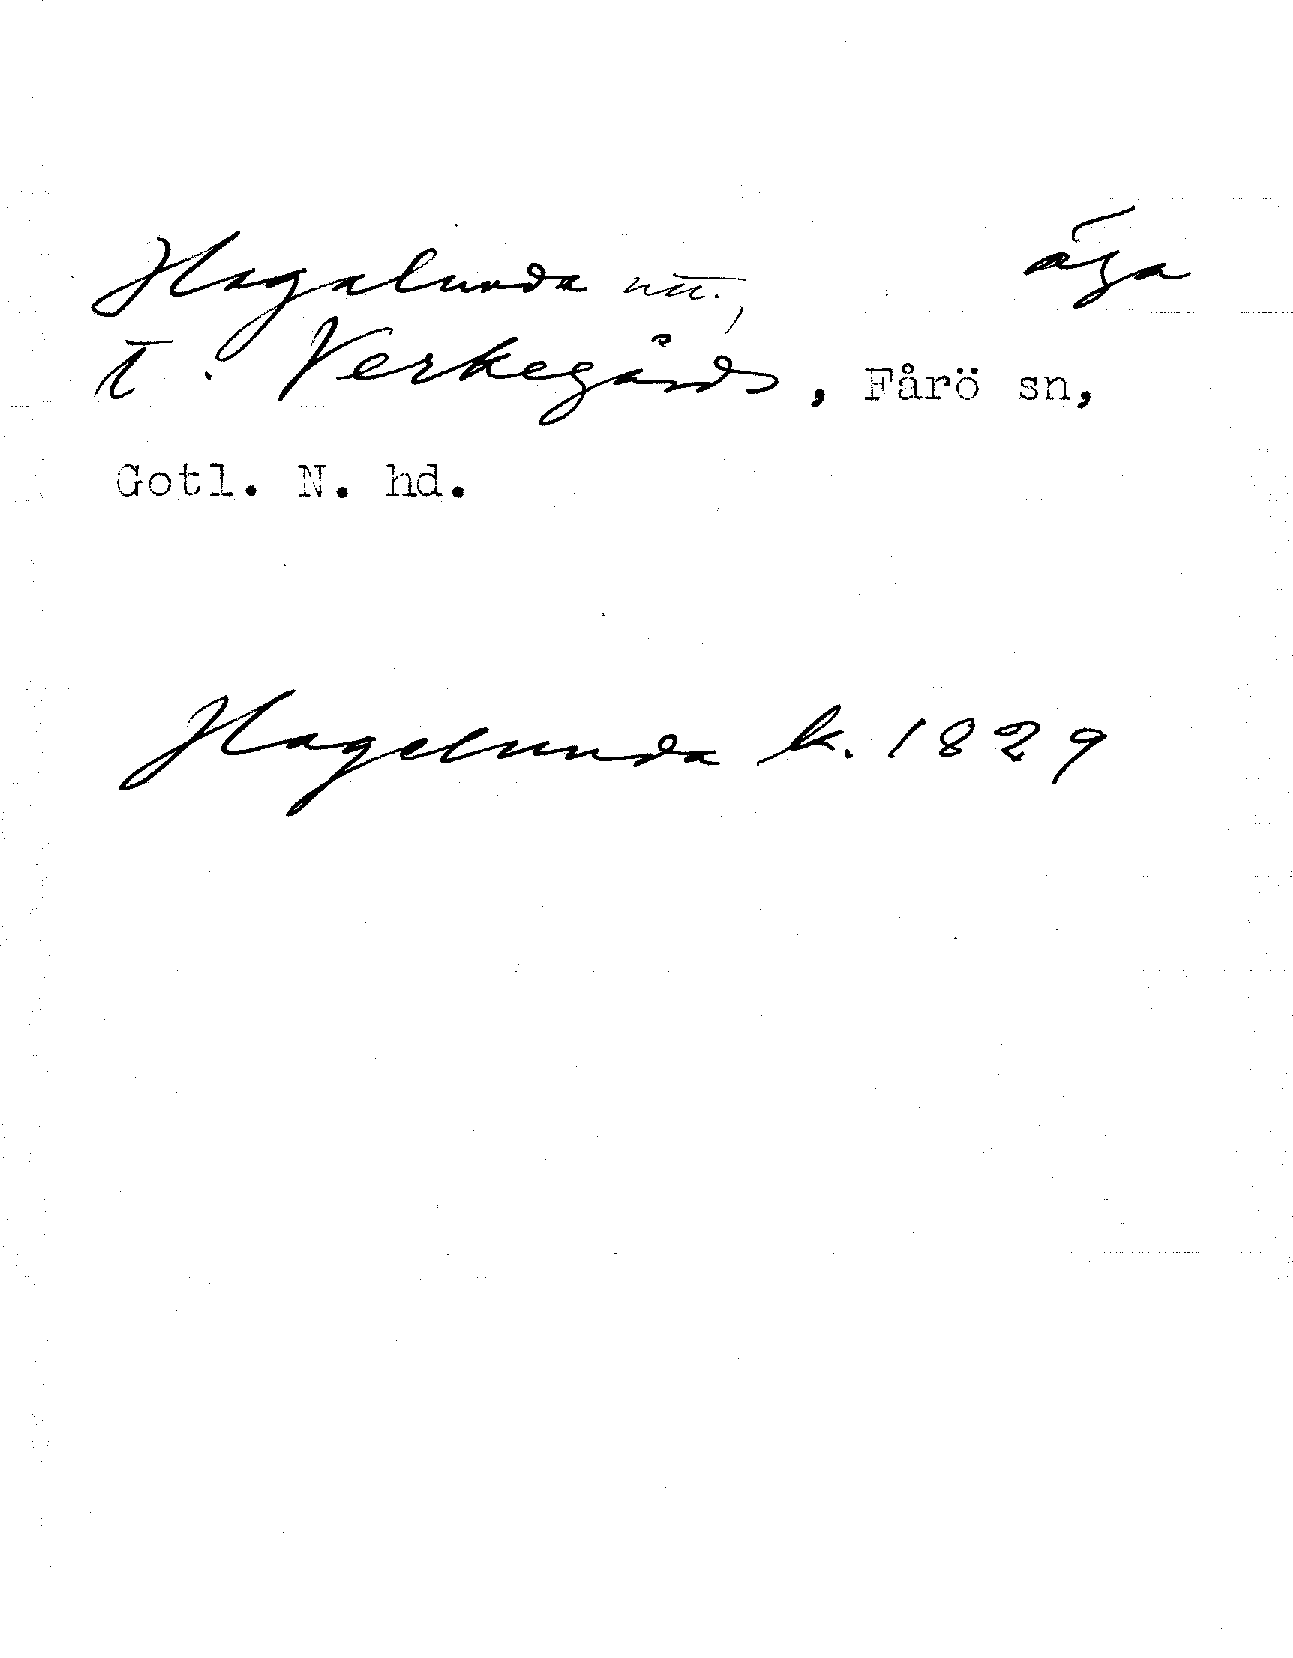 Hagalunda nu., äga
T. Verkegårds, Fårö sn,
Gotl. N. hd.
Hagelunda k. 1829